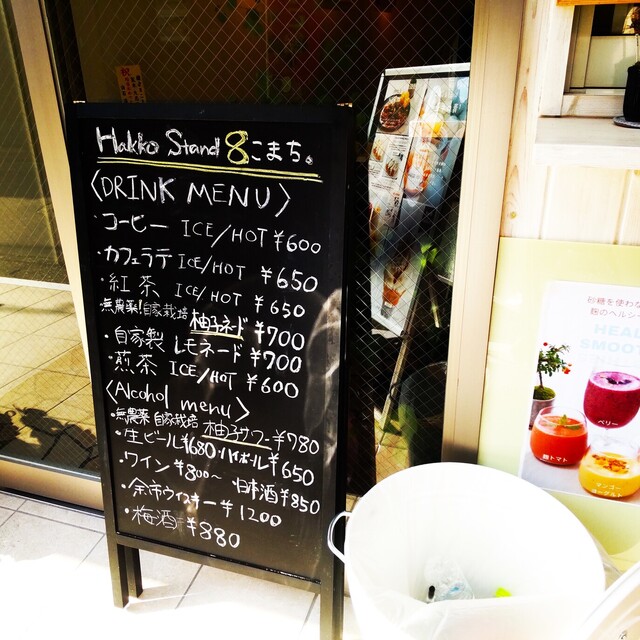 Hakko Stand 8こまち。
〈DRINK MENU〉
・コーヒー ICE/HOT ¥600
・カフェラテ ICE/HOT ¥650
・紅茶 ICE/HOT ¥650
無農薬!自家栽培 柚子ネード ¥700
・自家製 レモネード ¥700
・煎茶 ICE/HOT ¥600
〈Alcohol menu〉
・無農薬 自家栽培 柚子サワー ¥780
・生ビール ¥680 ・ハイボール ¥650
・ワイン ¥800〜 ・日本酒 ¥850
・余市ウィスキー ¥1200
・梅酒 ¥880
砂糖を使わな
麹のヘルシー
HEAL
SMOOT
ベリー
麹トマト
マンゴー
ヨーグルト